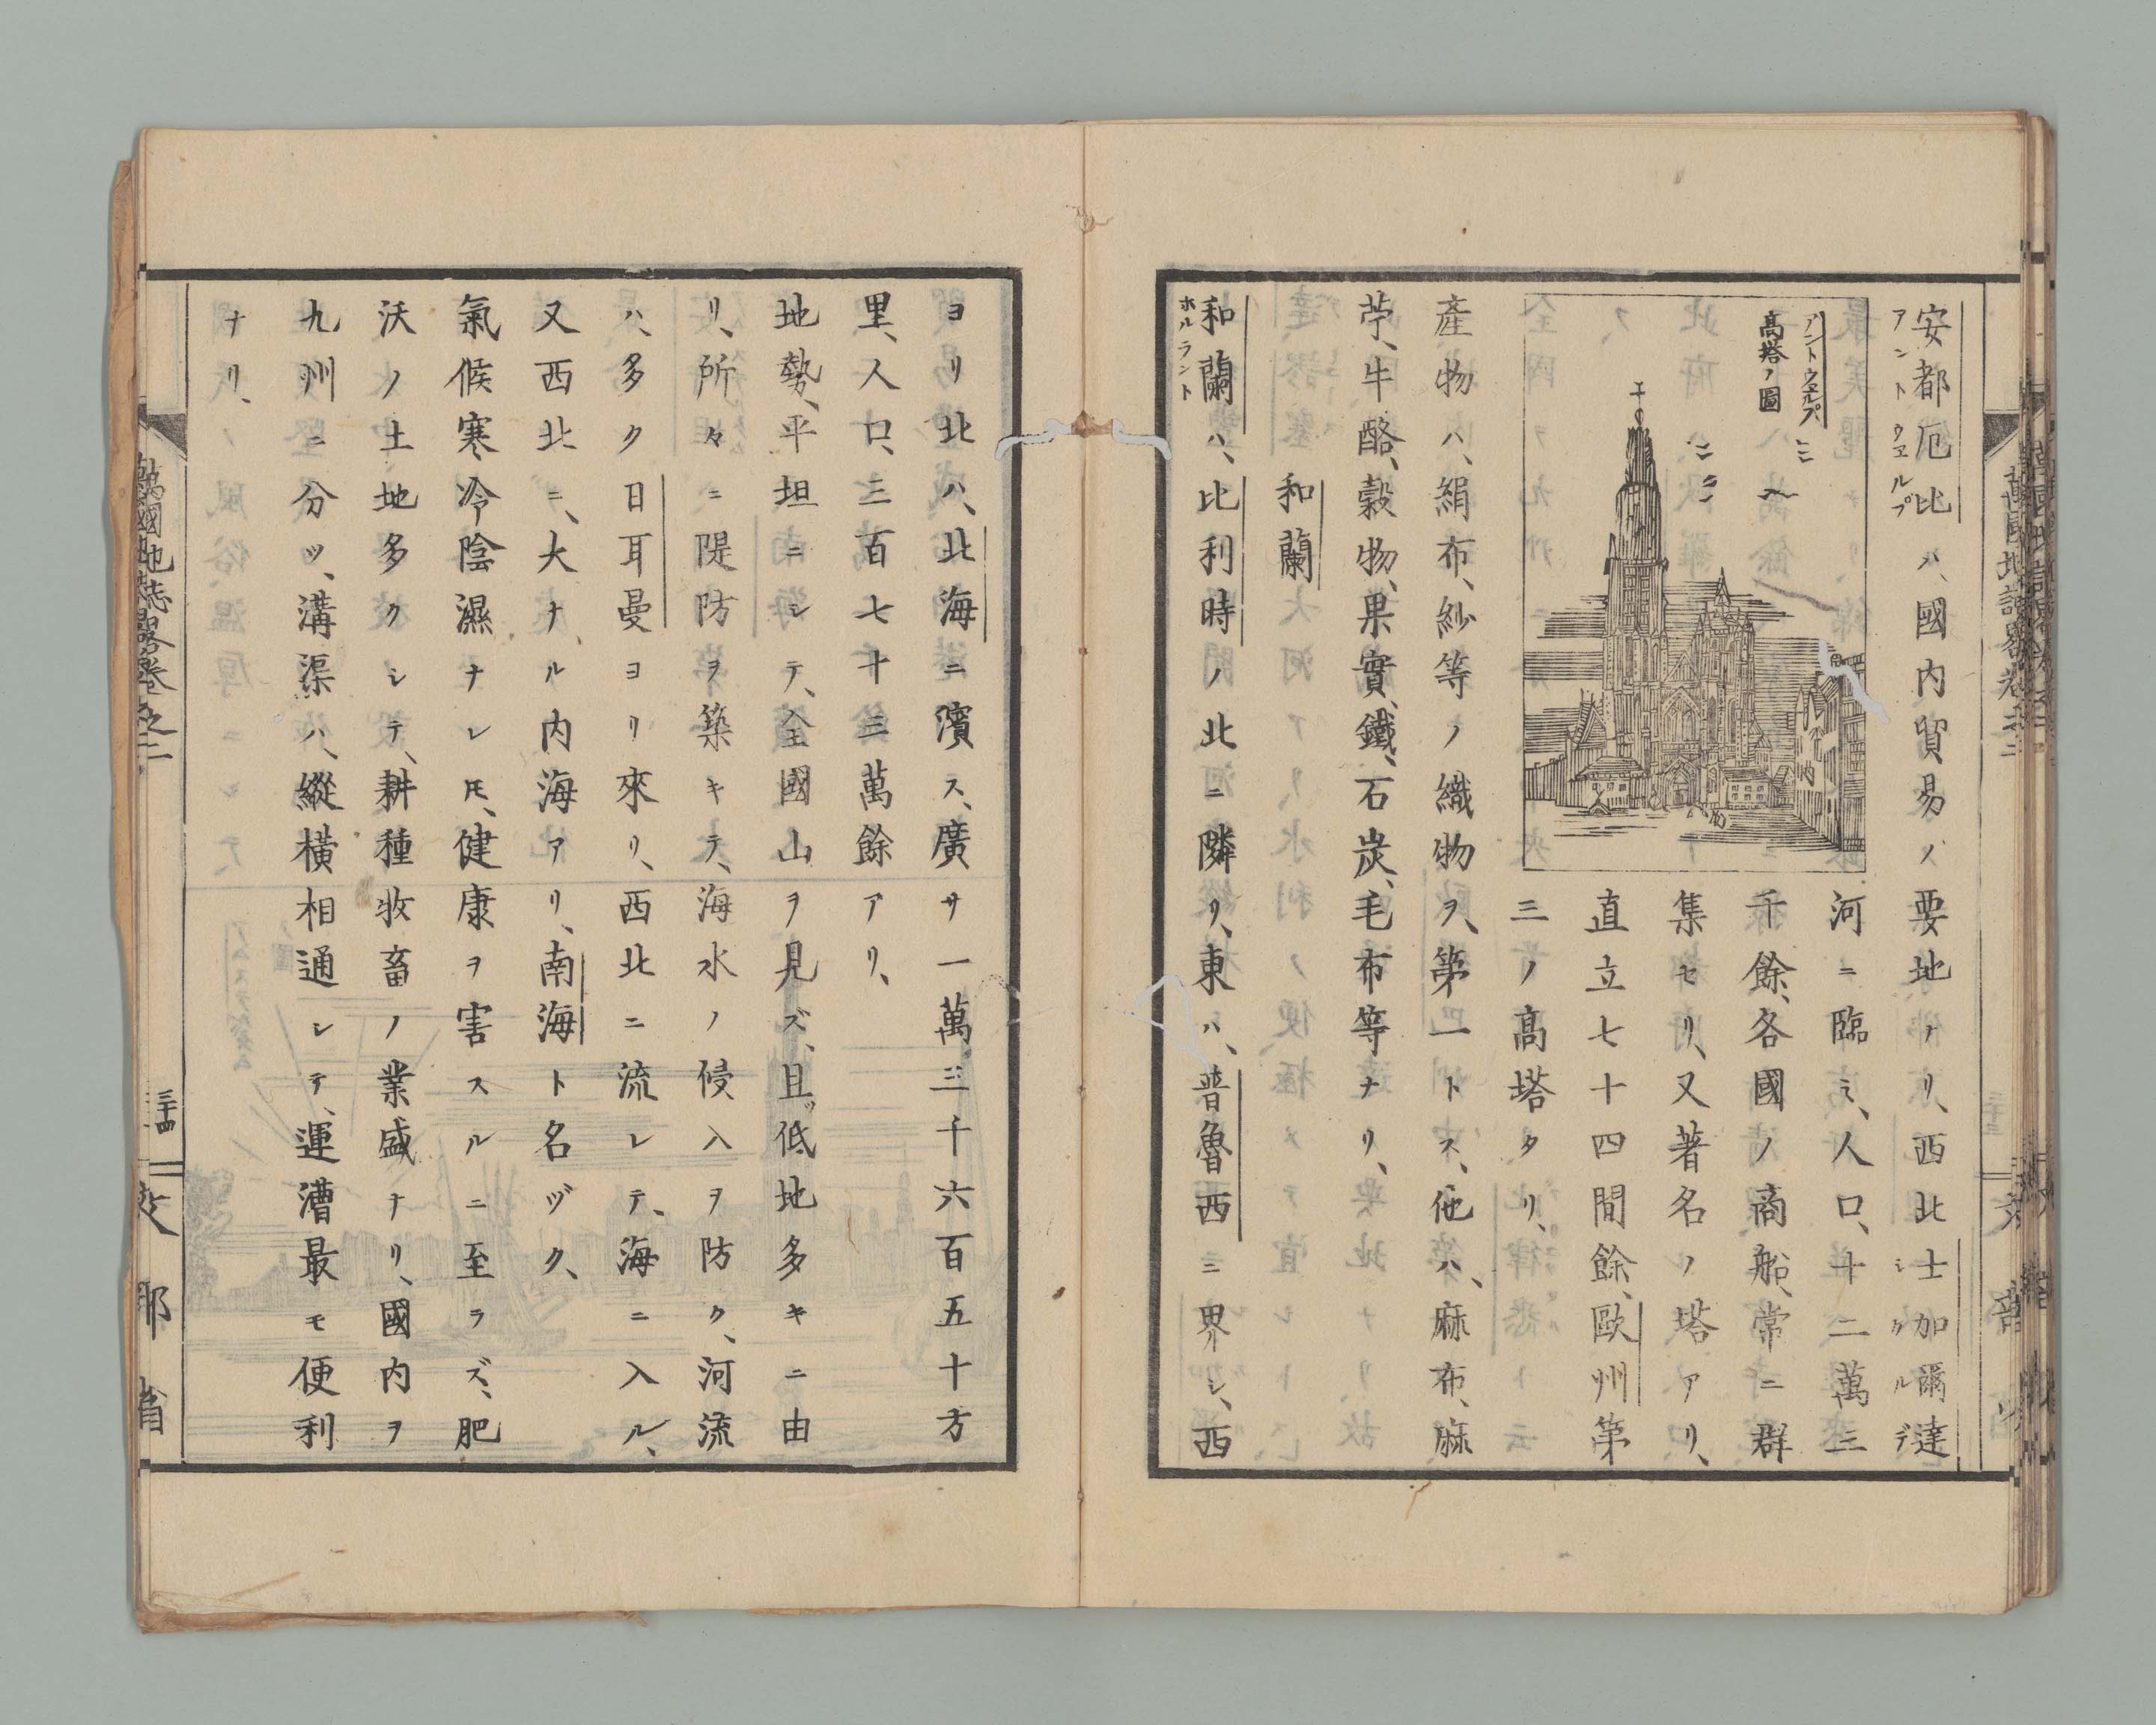 安都厄比ハ、國内貿易ノ要地ナリ、西北士加爾達
アントウエルプ
シカルデ
アントウエルプ
高塔ノ圖
河ニ臨ミ、人口、十二萬三
千餘、各國ノ商船、常ニ群
集セリ、又著名ノ塔アリ、
直立七十四間餘、歐州第
三ノ高塔タリ、
産物ハ、絹布、紗等ノ織物ヲ、第一トス、他ハ、麻布、麻
苧、牛酪、穀物、果實、鐵、石炭、毛布等ナリ、
和蘭
和蘭ハ、比利時ノ北ニ隣リ、東ハ、普魯西ニ界シ、西
ホルラント
ヨリ北ハ、北海ニ濱ス、廣サ一萬三千六百五十方
里、人口、三百七十三萬餘アリ、
地勢、平坦ニシテ、全國山ヲ見ズ、且低地多キニ由
リ、所々ニ隄防ヲ築キテ、海水ノ侵入ヲ防ク、河流
ハ、多ク日耳曼ヨリ來リ、西北ニ流レテ、海ニ入ル、
又西北ニ、大ナル内海アリ、南海ト名ヅク、
氣候寒冷陰濕ナレ𪜈、健康ヲ害スルニ至ラズ、肥
沃ノ土地多クシテ、耕種牧畜ノ業盛ナリ、國内ヲ
九州ニ分ツ、溝渠ハ、縱横相通シテ、運漕最モ便利
ナリ、
萬國地誌畧卷之二
三十四
文部省